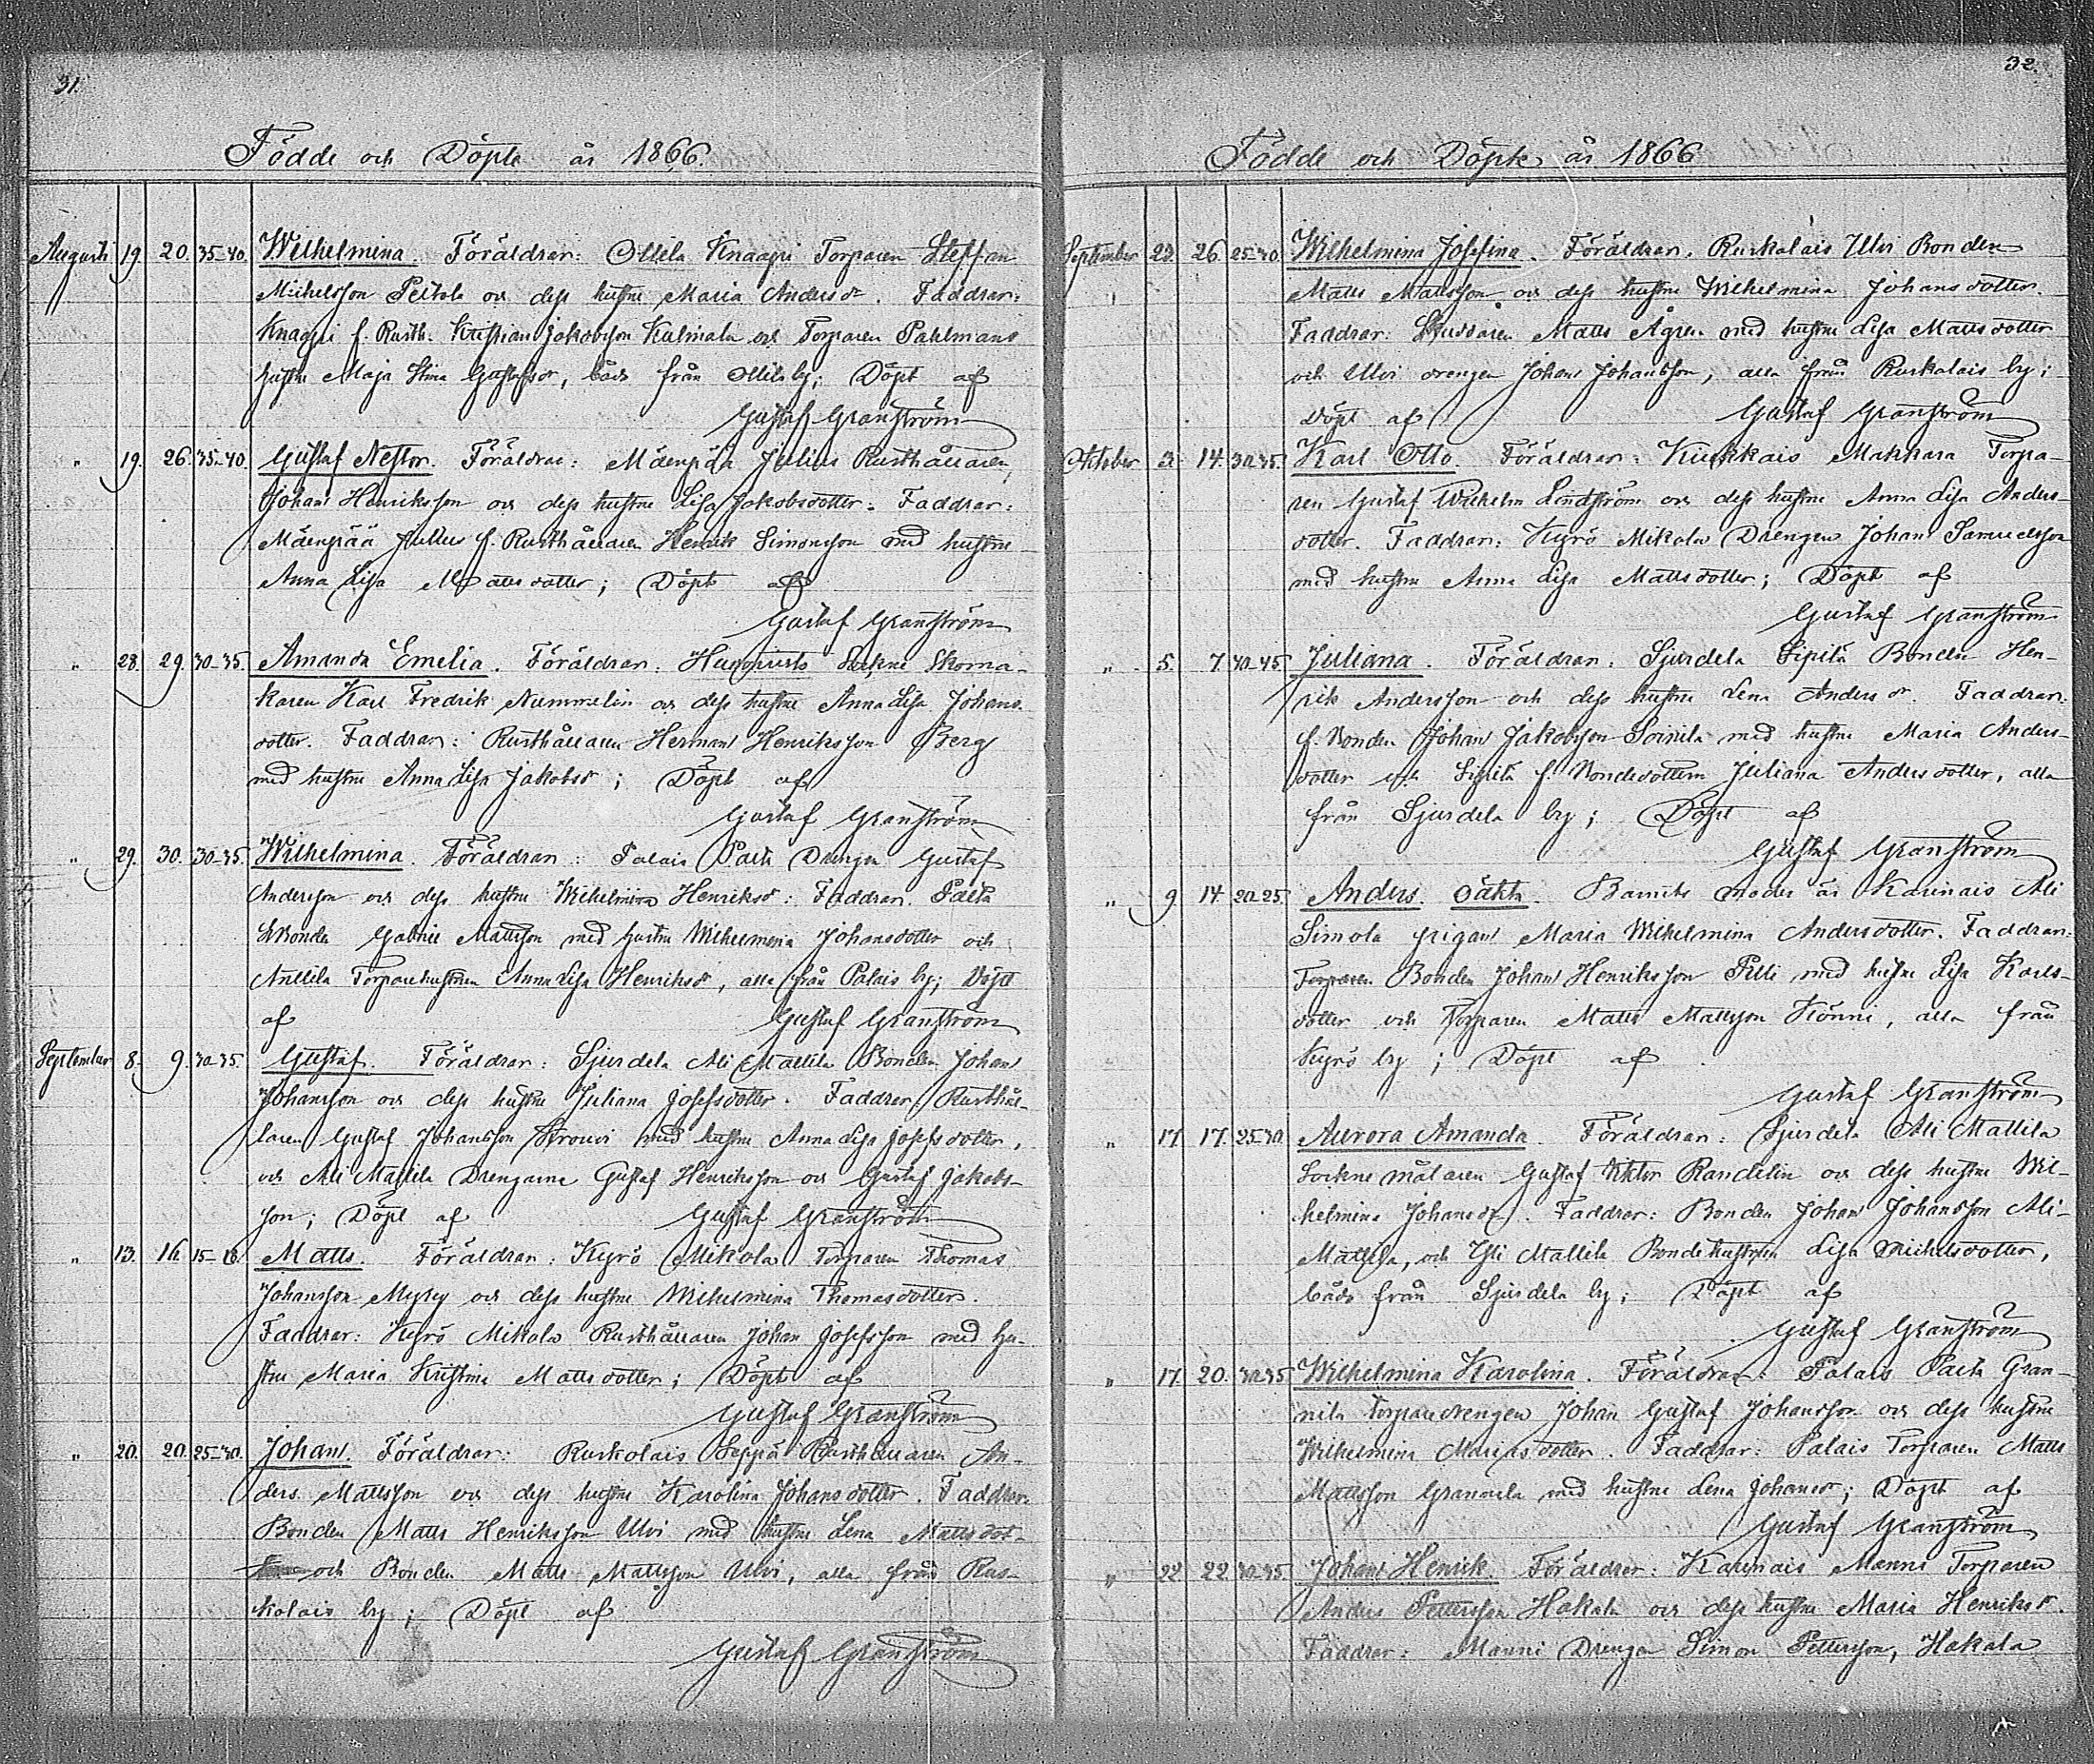 31.
Födde och Döpte år 1866.
Augusti 19. 20. 35-40. Wilhelmina. Föräldrar: Ollila Knaapi Torparen Steffan
Michelsson Peltola och dess hustru Maria Andersdr. Faddrar:
Knaapi f. Rusth. Kristian Jakobsson Kulmala och Torparen Pahlmans
hustru Maja Stina Gustafsdr, båda från Ollila by; Döpt af
Gustaf Granström
" 19. 26. 35-40. Gustaf Nestor. Föräldrar: Mäenpää Julius Rusthållaren
Johan Henriksson och dess hustru Lisa Jakobsdotter. Faddrar:
Mäenpää Jullus f. Rusthållaren Henrik Simonsson med hustru
Anna Lisa Mattsdotter; Döpt af
Gustaf Granström
" 28. 29. 30-35. Amanda Emelia. Föräldrar: Sockne Skoma-
karen Karl Fredrik Nummelin och dess hustru Anna Lisa Johans-
dotter. Faddrar: Rusthållaren Herman Henriksson Berg
med hustru Anna Lisa Jakobsdr; Döpt af
Gustaf Granström
" 29. 30. 30-35. Wilhelmina. Föräldrar: Palais Paila Drengen Gustaf
Andersson och dess hustru Wilhelmina Henriksdr: Faddrar. Paila
Bonden Gabriel Mattsson med hustru Wilhelmina Johansdotter och
Anttila Torparehustrun Anna Lisa Henriksdr, alla från Palais by; Döpt
af Gustaf Granström
September 8. 9. 30-35. Gustaf. Föräldrar: Sjurdela Ali Mattila Bonden Johan
Johansson och dess hustru Juliana Josefsdotter. Faddrar, Rusthål-
laren Gustaf Johansson Krouvi med hustru Anna Lisa Josefsdotter,
och Ali Mattila Drengarne Gustaf Henriksson och Gustaf Jakobs-
son; Döpt af Gustaf Granström
" 13. 16. 15- Matts. Föräldrar: Kyrö Mikola Torparen Thomas
Johansson Myry och dess hustru Wilhelmina Thomasdotter.
Faddrar: Kyrö Mikola Rusthållaren Johan Josefsson med hu-
stru Maria Kristina Mattsdotter; Döpt af
Gustaf Granström
" 20. 20. 25-30. Johan. Föräldrar: Ruskolais Seppä Rusthållaren An-
ders Mattsson och dess hustru Karolina Johansdotter. Faddrar
Bonden Matts Henriksson Ulvi med hustru Lena Mattsdot-
och Bonden Matts Mattsson Ulvi, alla från Rus-
kolais by; Döpt af
Gustaf Granström
32.
Födde och Döpte år 1866
September 23. 26. 25-30. Wilhelmina Josefina. Föräldrar. Ruskolais Ulvi Bonden
Matts Mattsson och dess hustru Wilhelmina Johansdotter.
Faddrar: Matts Ågren med hustru Lisa Mattsdotter
och Ulvi drengen Johan Johansson, alla från Ruskolais by;
Döpt af Gustaf Granström
Oktober 3. 14. 30-35. Karl Otto. Föräldrar: Kukkais Makkara Torpa-
ren Gustaf Wilhelm Lindström och dess hustru Anna Lisa Anders-
dotter. Faddrar: Kyrö Mikola Drengen Johan Samuelsson
med hustru Anna Lisa Mattsdotter; Döpt af
Gustaf Granström
" 5. 7. 40-45. Juliana. Föräldrar: Sjurdela Sipilä Bonden Hen-
rik Andersson och dess hustru Lena Andersdr. Faddrar:
f. Bonden Johan Jakobsson Soinila med hustru Maria Anders-
dotter och Sipilä f. Bondedottern Juliana Andersdotter, alla
från Sjurdela by; Döpt af
Gustaf Granström
" 9. 14. 20-25. Anders. oäkta. Barnets moder är Karinais Ali
Simola pigan Maria Wilhelmina Andersdotter. Faddrar:
Torparen Bonden Johan Henriksson Pilli med hustru Lisa Karls-
dotter och Torparen Matts Mattsson Könni, alla från
Kyrö by; Döpt af
Gustaf Granström
" 17. 17. 25-30. Aurora Amanda. Föräldrar: Sjurdela Ali Mattila
Socknemålaren Gustaf Viktor Randelin och dess hustru Wil-
helmina Johansdr. Faddrar: Bonden Johan Johansson Ali-
Mattila, och Yli Mattila Bondehustrun Lisa Michelsdotter,
båda från Sjurdela by; Döpt af
Gustaf Granström
" 17. 20. 30-35. Wilhelmina Karolina. Föräldrar: Palais Paila Gran-
nila Torparedrengen Johan Gustaf Johansson och dess hustru
Wilhelmina Mariasdotter. Faddrar: Palais Torparen Matts
Mattsson Grannila med hustru Lena Johansdr; Döpt af
Gustaf Granström
" 22. 22. 30-35. Johan Henrik. Föräldrar: Karinais Manni Torparen
Anders Pettersson Hakala och dess hustru Maria Henriksdr.
Faddrar: Manni Drengen Simon Pettersson, Hakala